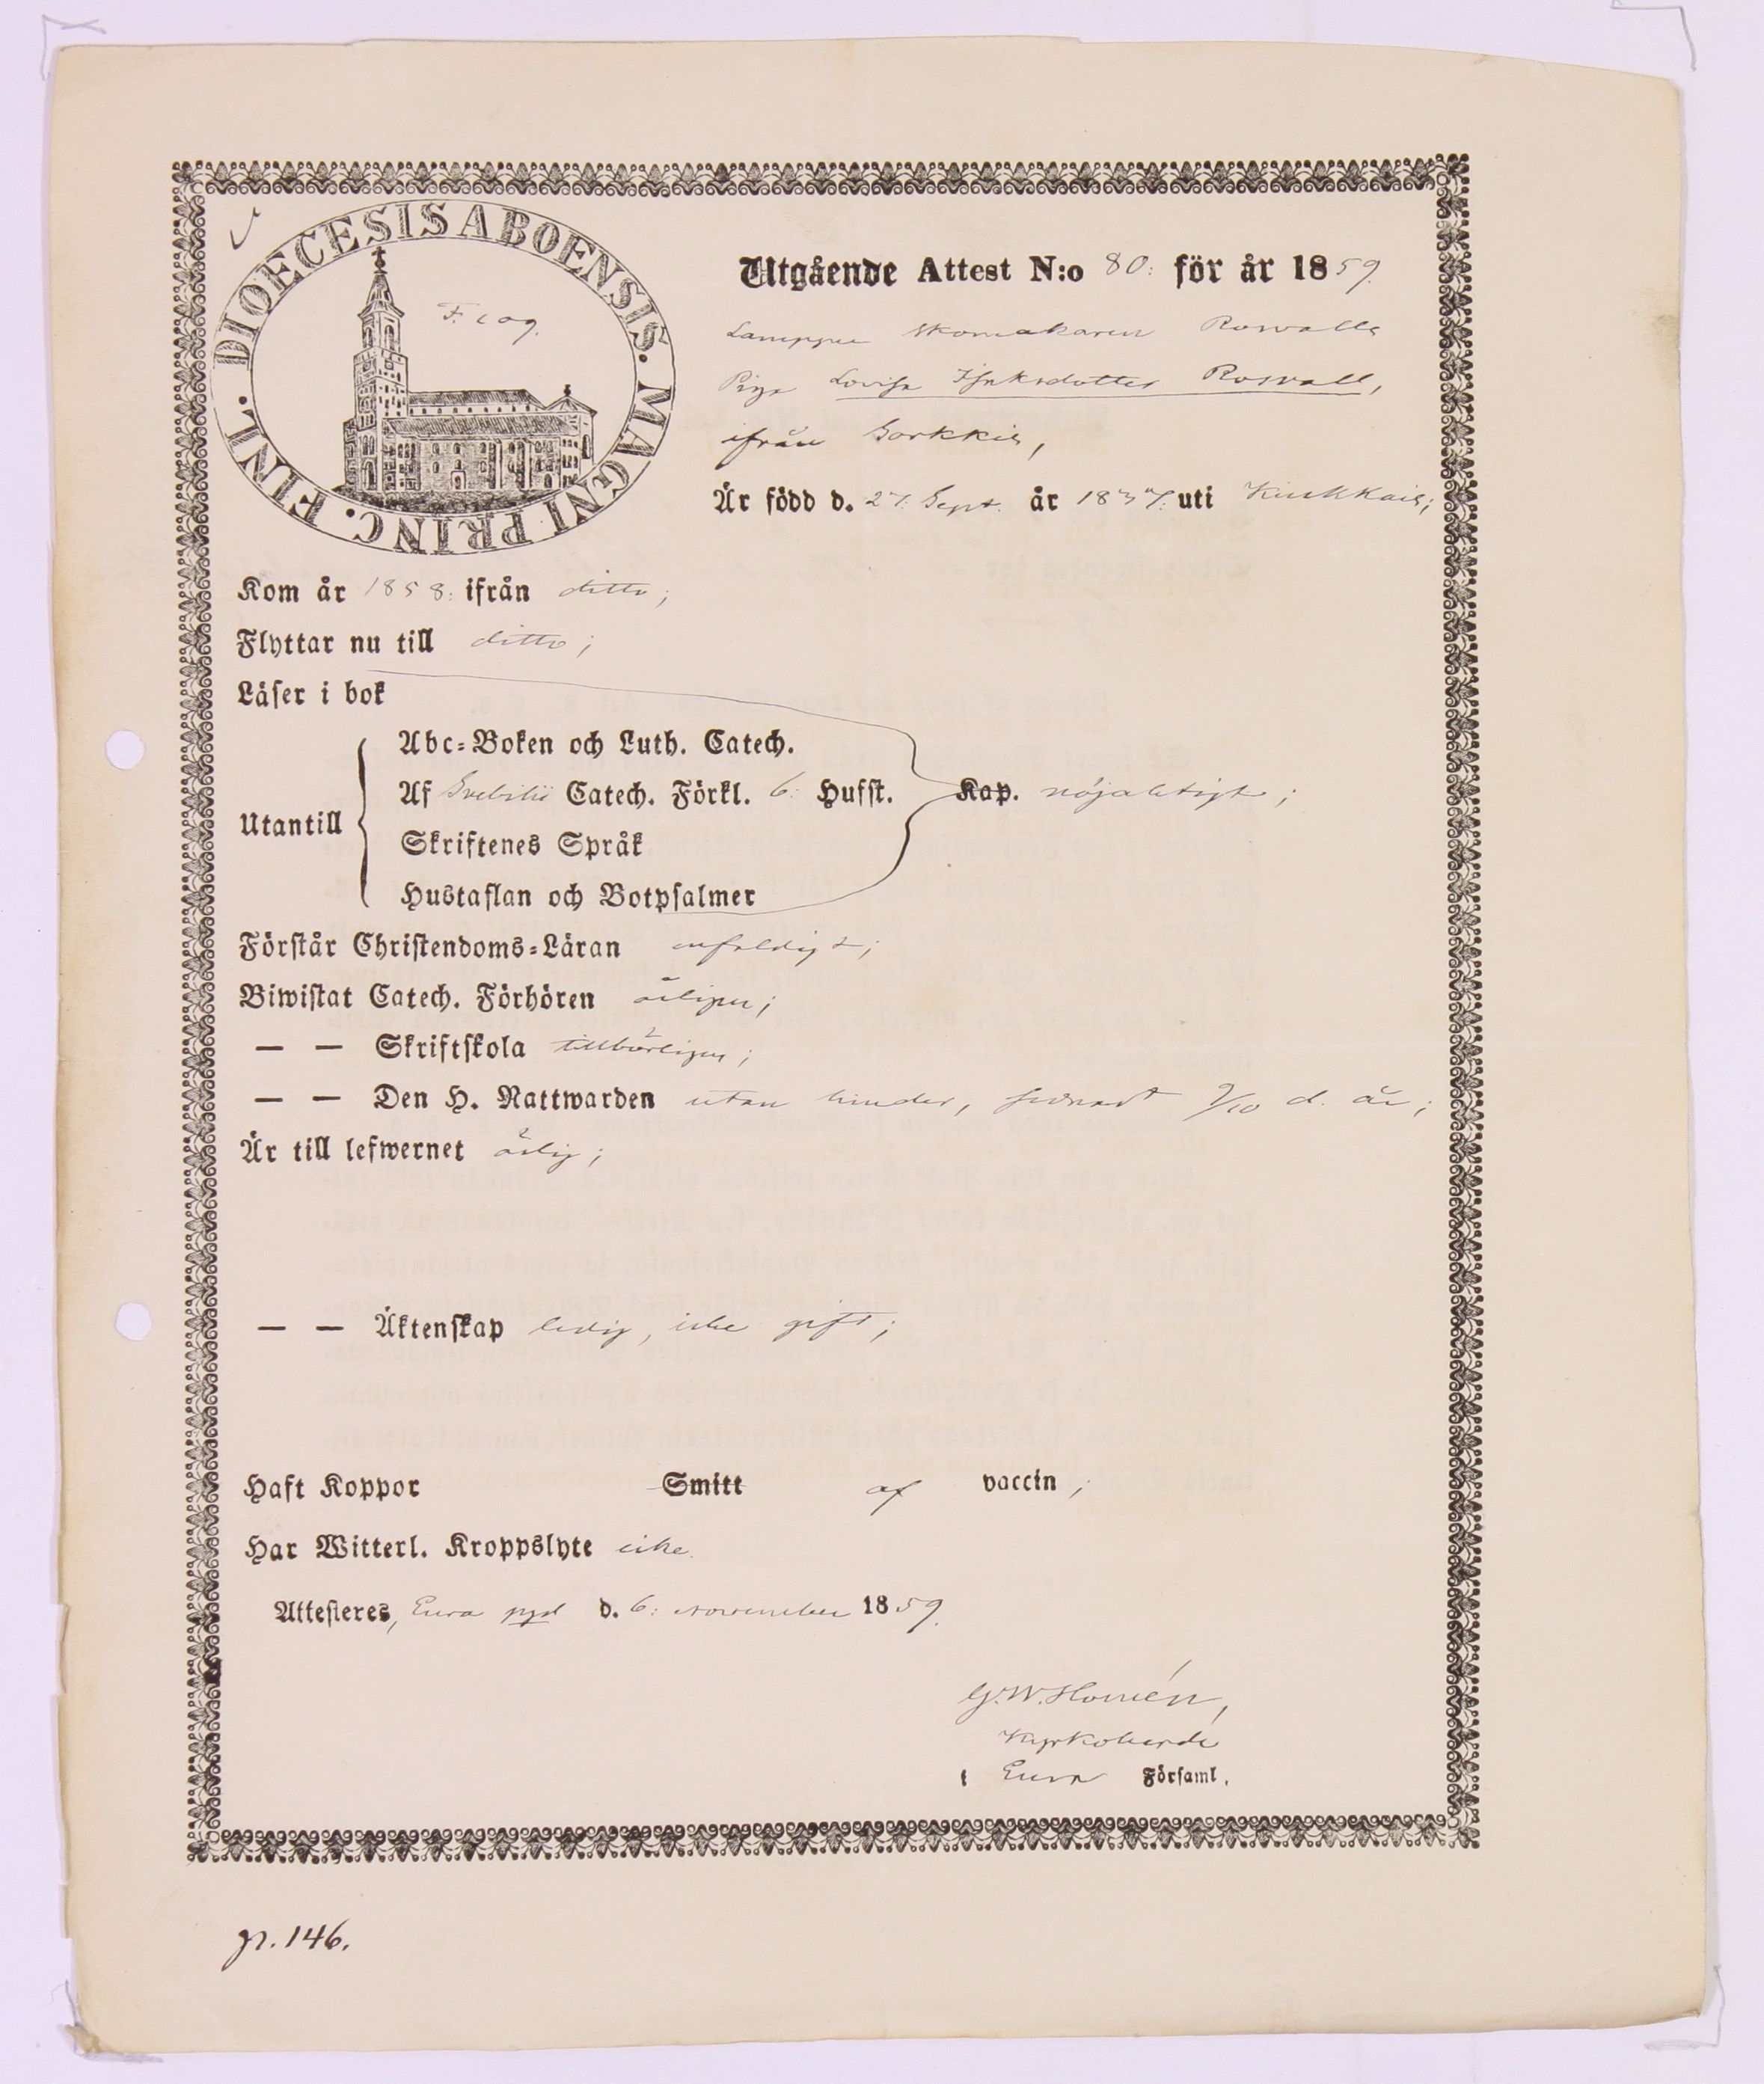 DIOECESIS ABOENSIS. MAGNI PRINC. FINL.
F. 109.
Utgående Attest N:o 80. för år 1859.
skomakaren Roswalls
Piga Lovisa Isaksdotter Roswall,
ifrån Sorkkis,
Är född d. 27. Sept. år 1837. uti Kiukkais;
Kom år 1858. ifrån ditto;
Flyttar nu till ditto;
Läser i bok
Abc-Boken och Luth. Catech.
Utantill Af Svebilii Catech. Förkl. 6. Hufst. Kap. nöjaktigt;
Skriftenes Språk
Hustaflan och Botpsalmer
Förstår Christendoms-Läran enfaldigt;
Biwistat Catech. Förhören årligen;
— — Skriftskola tillbörligen;
— — Den H. Nattwarden utan hinder, senast 9/10 d. år;
Är till lefwernet ärlig;
— — Äktenskap ledig, icke gift;
Haft Koppor Smitt af vaccin;
Har Witterl. Kroppslyte icke.
Attesteres, Eura pgd d. 6. November 1859.
G. W. Homén,
Kyrkoherde
i Eura Församl.
p. 146.